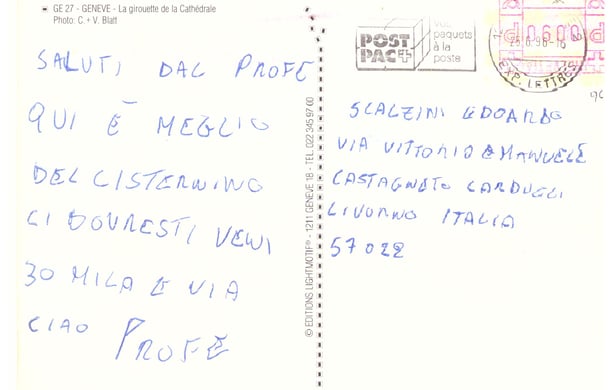 GE 27 - GENEVE - La girouette de la Cathédrale
Photo: C. + V. Blatt
SALUTI DAL PROFE
QUI È MEGLIO
DEL CISTERNINO
CI DOVRESTI VENI
30 MILA E VIA
CIAO PROFE
© EDITIONS LIGHTMOTIF® - 1211 GENEVE 18 - TEL. 022 345 97 00
POST
PAC+
vos
paquets
à la
poste
0600
25.6.98-16
EXP. LETTRES
SCALZINI EDOARDO
VIA VITTORIO EMANUELE
CASTAGNETO CARDUCCI
LIVORNO ITALIA
57022